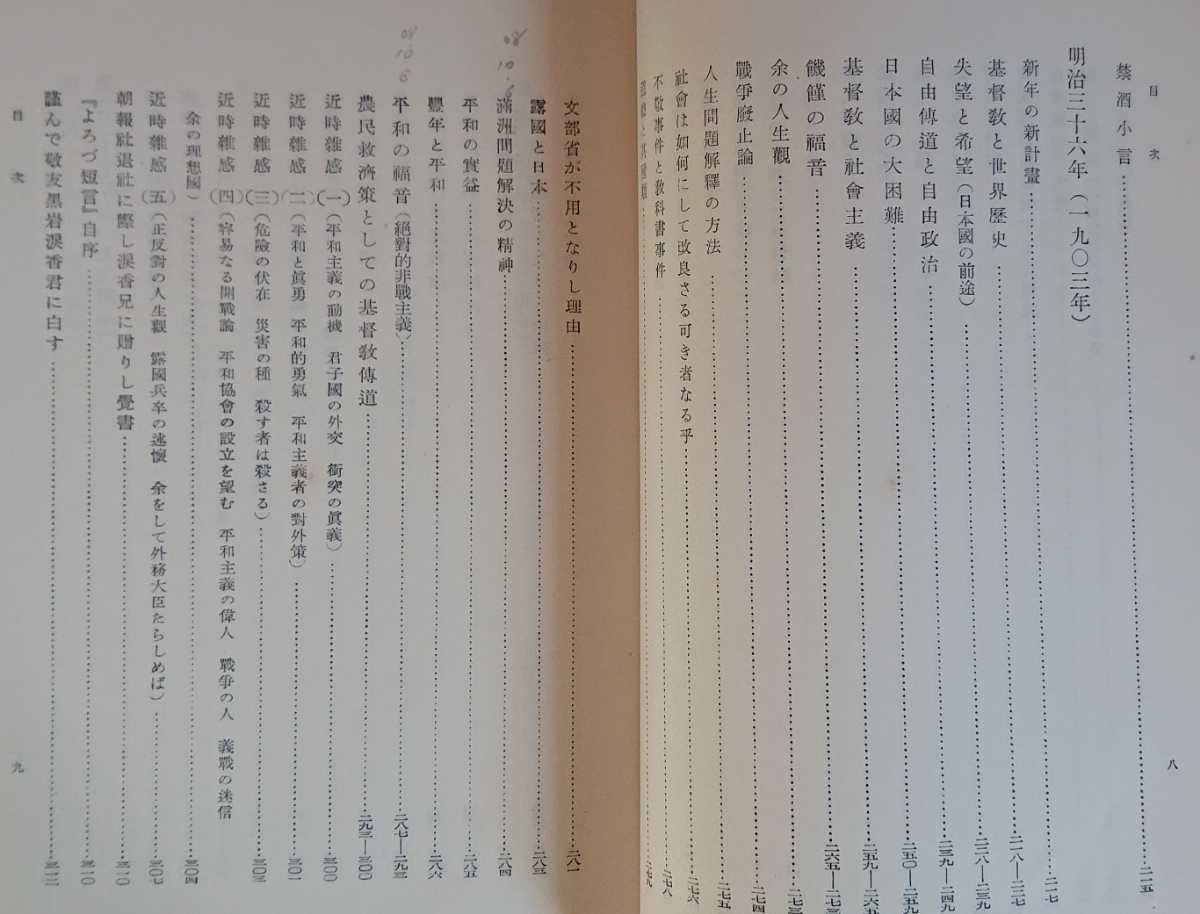 目次
八
禁酒小言……二一五
明治三十六年(一九〇三年)
新年の新計畫……二一七
基督敎と世界歷史……二一八—二二七
失望と希望(日本國の前途)……二二八—二三九
自由傳道と自由政治……二三九—二四九
日本國の大困難……二五〇—二五九
基督敎と社會主義……二五九—二六五
饑饉の福音……二六五—二七三
余の人生觀……二七三
戰爭廢止論……二七四
人生問題解釋の方法……二七五
社會は如何にして改良さる可き者なる乎……二七六
不敬事件と敎科書事件……二七八
文部省が不用となりし理由……二八一
露國と日本……二八三
滿洲問題解決の精神……二八四
平和の實益……二八五
豐年と平和……二八六
平和の福音(絕對的非戰主義)……二八七—二九三
農民救濟策としての基督敎傳道……二九三—三〇〇
近時雜感(一)(平和主義の動機 君子國の外交 衝突の眞義)……三〇〇
近時雜感(二)(平和と眞勇 平和的勇氣 平和主義者の對外策)……三〇一
近時雜感(三)(危險の伏在 災害の種 殺す者は殺さる)……三〇三
近時雜感(四)(容易なる開戰論 平和協會の設立を望む 平和主義の偉人 戰爭の人 義戰の迷信
余の理想國)……三〇四
近時雜感(五)(正反對の人生觀 露國兵卒の述懷 余をして外務大臣たらしめば)……三〇七
朝報社退社に際し淚香兄に贈りし覺書……三一〇
『よろづ短言』自序……三一〇
謹んで敬友黑岩淚香君に白す……三一二
目次
九